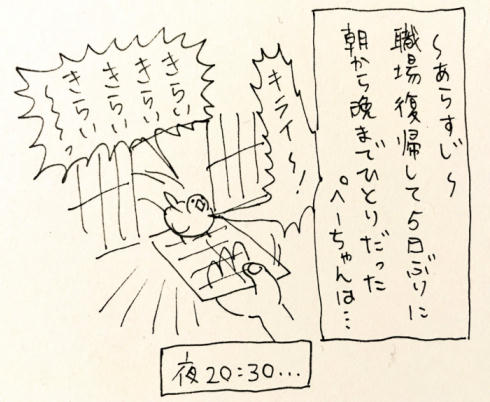 ～あらすじ～
職場復帰して5日ぶりに
朝から晩までひとりだった
ぺーちゃんは…
キライ～!
きらい
きらい
きらい
きらい
～～～っ
夜20:30…